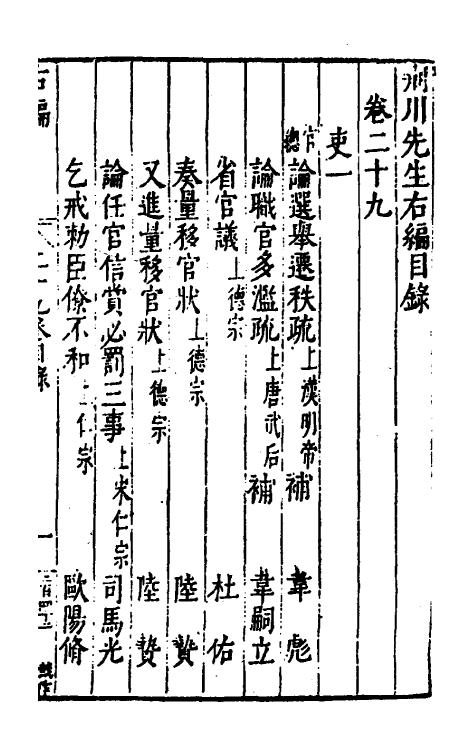 荆川先生右編目錄
卷二十九
吏一
官總 論選舉遷秩疏 上漢明帝 補 韋彪
論職官多濫疏 上唐武后 補 韋嗣立
省官議 上德宗 杜佑
奏量移官狀 上德宗 陸贄
又進量移官狀 上德宗 陸贄
論任官信賞必罰三事 上宋仁宗 司馬光
乞戒勅臣僚不和 上仁宗 歐陽脩
右編 二十九卷目錄 一